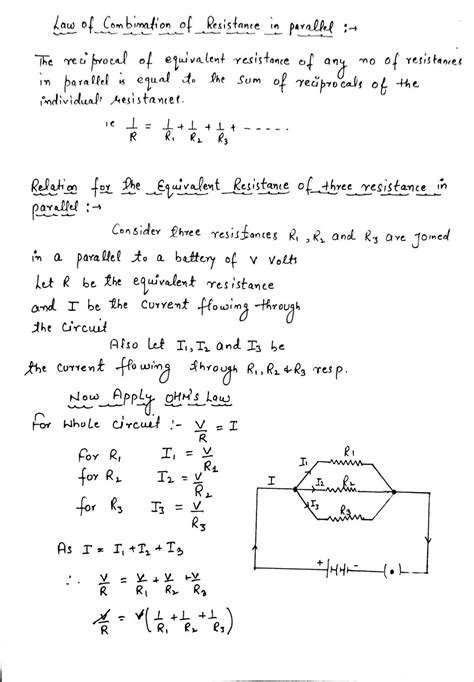 Law of Combination of Resistance in parallel :→
The reciprocal of equivalent resistance of any no of resistances
in parallel is equal to the sum of reciprocals of the
individual resistances.
ie 1/R = 1/R1 + 1/R2 + 1/R3 + -----
Relation for the Equivalent Resistance of three resistance in
parallel :→
Consider three resistances R1, R2 and R3 are joined
in a parallel to a battery of V volts
Let R be the equivalent resistance
and I be the current flowing through
the circuit
Also let I1, I2 and I3 be
the current flowing through R1, R2 & R3 resp.
Now Apply OHM's Law
For whole circuit :- V/R = I
For R1 I1 = V/R1
for R2 I2 = V/R2
for R3 I3 = V/R3
As I = I1 + I2 + I3
∴ V/R = V/R1 + V/R2 + V/R3
V/R = V(1/R1 + 1/R2 + 1/R3)
I1 R1
I I2 R2
I3 R3
+ -